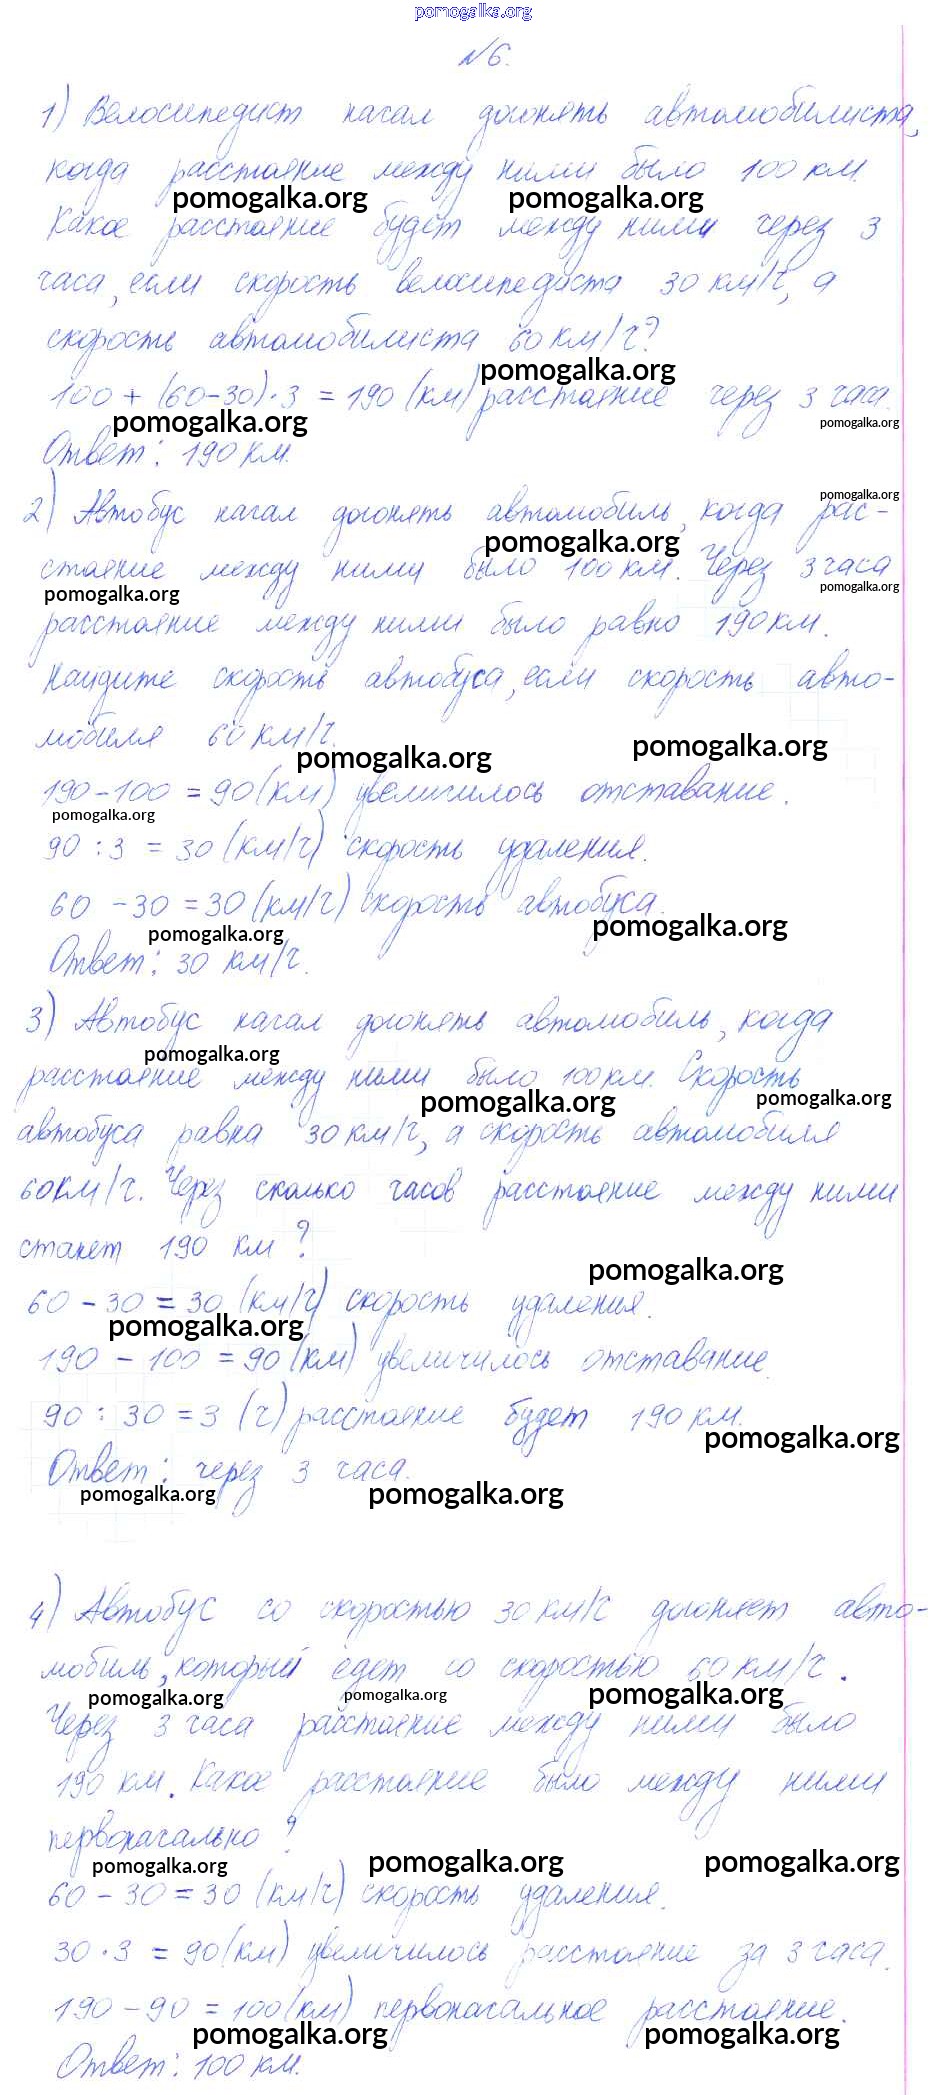 pomogalka.org
№6.
1) Велосипедист начал догонять автомобилиста,
когда расстояние между ними было 100 км.
pomogalka.org pomogalka.org
Какое расстояние будет между ними через 3
часа, если скорость велосипедиста 30 км/ч, а
скорость автомобилиста 60 км/ч?
pomogalka.org
100 + (60-30)·3 = 190 (км) расстояние через 3 часа.
pomogalka.org pomogalka.org
Ответ: 190 км.
pomogalka.org
2) Автобус начал догонять автомобиль, когда рас-
pomogalka.org
стояние между ними было 100 км. Через 3 часа
pomogalka.org pomogalka.org
расстояние между ними было равно 190 км.
Найдите скорость автобуса, если скорость авто-
мобиля 60 км/ч.
pomogalka.org pomogalka.org
190-100 = 90 (км) увеличилось отставание.
pomogalka.org
90 : 3 = 30 (км/ч) скорость удаления.
60 - 30 = 30 (км/ч) скорость автобуса.
pomogalka.org pomogalka.org
Ответ: 30 км/ч.
3) Автобус начал догонять автомобиль, когда
pomogalka.org
расстояние между ними было 100 км. Скорость
pomogalka.org pomogalka.org
автобуса равна 30 км/ч, а скорость автомобиля
60 км/ч. Через сколько часов расстояние между ними
станет 190 км?
pomogalka.org
60 - 30 = 30 (км/ч) скорость удаления.
pomogalka.org
190 - 100 = 90 (км) увеличилось отставание.
90 : 30 = 3 (ч) расстояние будет 190 км.
pomogalka.org
Ответ: через 3 часа.
pomogalka.org pomogalka.org
4) Автобус со скоростью 30 км/ч догоняет авто-
мобиль, который едет со скоростью 60 км/ч.
pomogalka.org pomogalka.org pomogalka.org
Через 3 часа расстояние между ними было
190 км. Какое расстояние было между ними
первоначально?
pomogalka.org pomogalka.org pomogalka.org
60 - 30 = 30 (км/ч) скорость удаления.
30 · 3 = 90 (км) увеличилось расстояние за 3 часа.
190 - 90 = 100 (км) первоначальное расстояние.
pomogalka.org pomogalka.org
Ответ: 100 км.